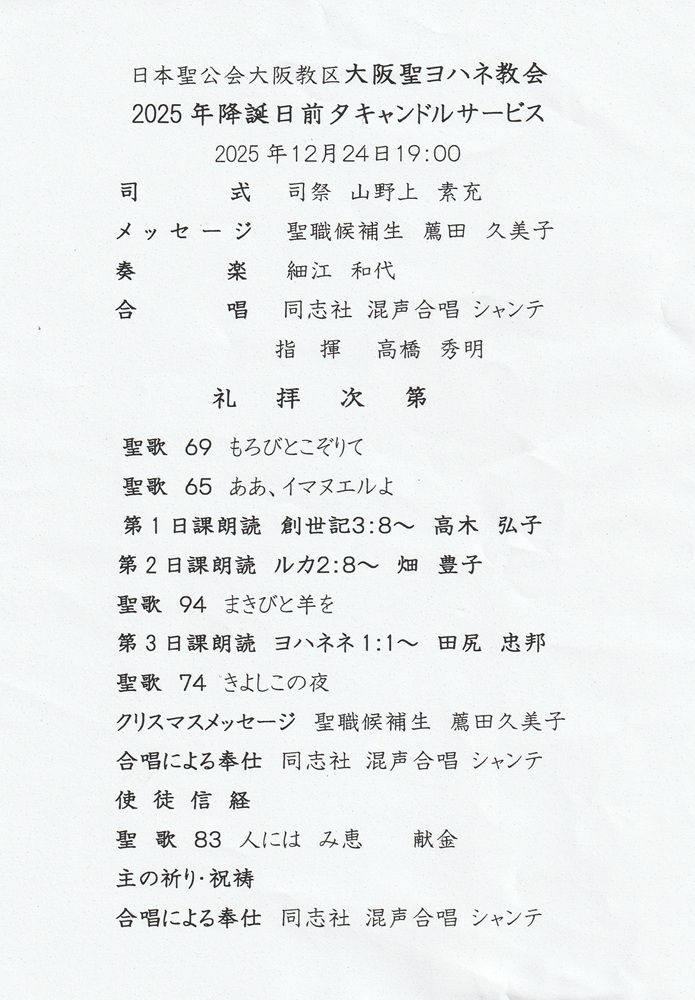 日本聖公会大阪教区大阪聖ヨハネ教会
2025年降誕日前夕キャンドルサービス
2025年12月24日19:00
司 式 司祭 山野上 素充
メッセージ 聖職候補生 薦田 久美子
奏 楽 細江 和代
合 唱 同志社 混声合唱 シャンテ
指 揮 高橋 秀明
礼 拝 次 第
聖歌 69 もろびとこぞりて
聖歌 65 ああ、イマヌエルよ
第1日課朗読 創世記3:8～ 高木 弘子
第2日課朗読 ルカ2:8～ 畑 豊子
聖歌 94 まきびと羊を
第3日課朗読 ヨハネネ1:1～ 田尻 忠邦
聖歌 74 きよしこの夜
クリスマスメッセージ 聖職候補生 薦田久美子
合唱による奉仕 同志社 混声合唱 シャンテ
使 徒 信 経
聖 歌 83 人には み恵 献金
主の祈り・祝祷
合唱による奉仕 同志社 混声合唱 シャンテ